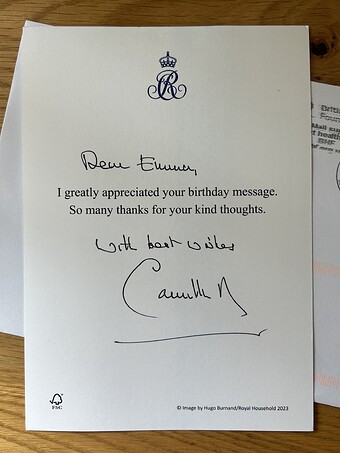 CR
Dear Emma,
I greatly appreciated your birthday message.
So many thanks for your kind thoughts.
with best wishes
Camilla R
FSC
© Image by Hugo Burnand/Royal Household 2023
Briti
Foun
Mail su
t health
BHF